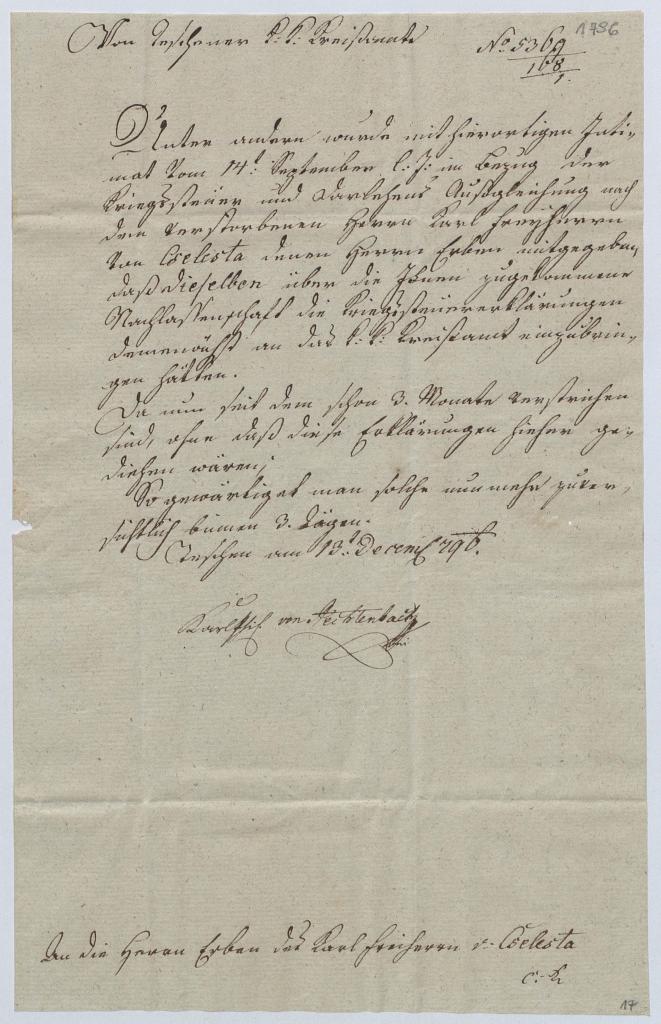 Von Teschener k: k: Kreißamte
No 5369
168
1.
1796
Unter andern wurde mit hierortigen Inti-
mat vom 14t: September l: J: im Bezug der
Kriegssteuer und Darlehens Ausgleichung nach
dem verstorbenen Herrn Karl Freyherrn
von Cselesta denen Herrn Erben mitgegeben,
daß dieselben über die Ihnen zugekommene
Nachlassenschaft die Kriegssteuererklärungen
demnächst an das k: k: Kreisamt einzubrin-
gen hätten.
Da nun seit dem schon 3. Monate verstrichen
sind, ohne daß diese Erklärungen hieher ge-
diehen wären;
So gewärtiget man solche nunmehr zuver-
sichtlich binnen 3. Tägen.
Teschen am 13t: Decemb 796.
Karl von
An die Herrn Erben des Karl Freiherrn v: Cselesta
17